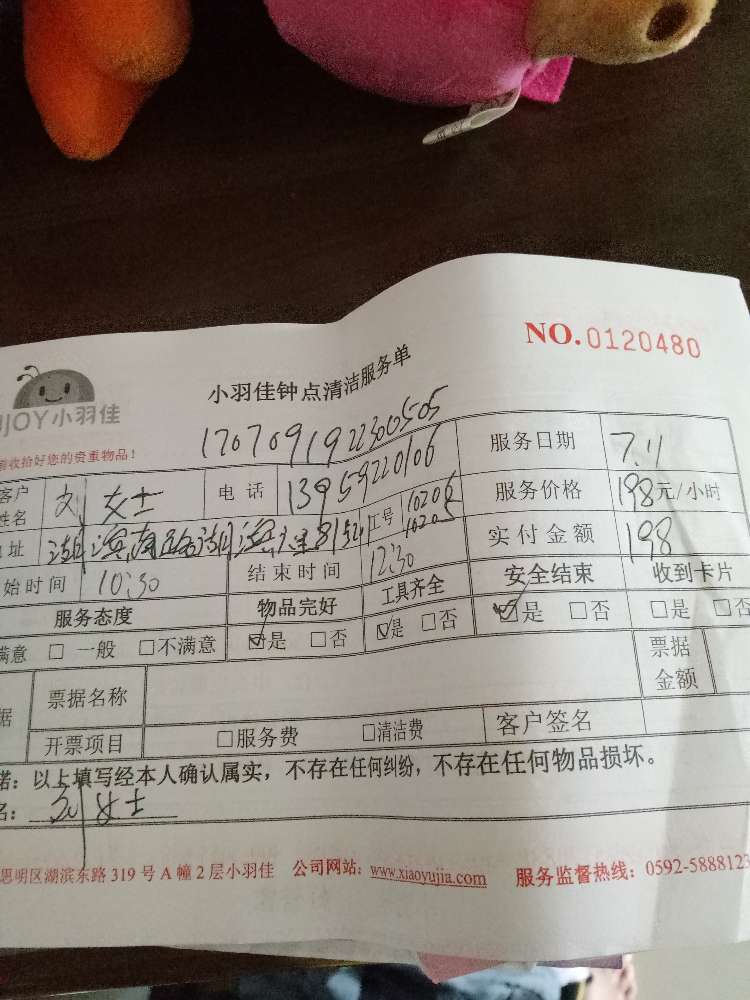 NO.0120480
小羽佳钟点清洁服务单
JOY小羽佳
收拾好您的贵重物品！
1707091922300505
客户姓名 刘女士 电话 13959220106 服务日期 7.11
址 湖滨南路湖滨 工号 10206 服务价格 198元/小时
10205
始时间 10:30 结束时间 12:30 实付金额 198
服务态度 物品完好 工具齐全 安全结束 收到卡片
满意 □ 一般 □不满意 ☑是 □否 ☑是 □否 ☑是 □否 □是 □否
据 票据名称 票据金额
开票项目 □服务费 □清洁费 客户签名
诺：以上填写经本人确认属实，不存在任何纠纷，不存在任何物品损坏。
名：刘女士
思明区湖滨东路 319 号 A 幢 2 层小羽佳 公司网站：www.xiaoyujia.com 服务监督热线：0592-5888123